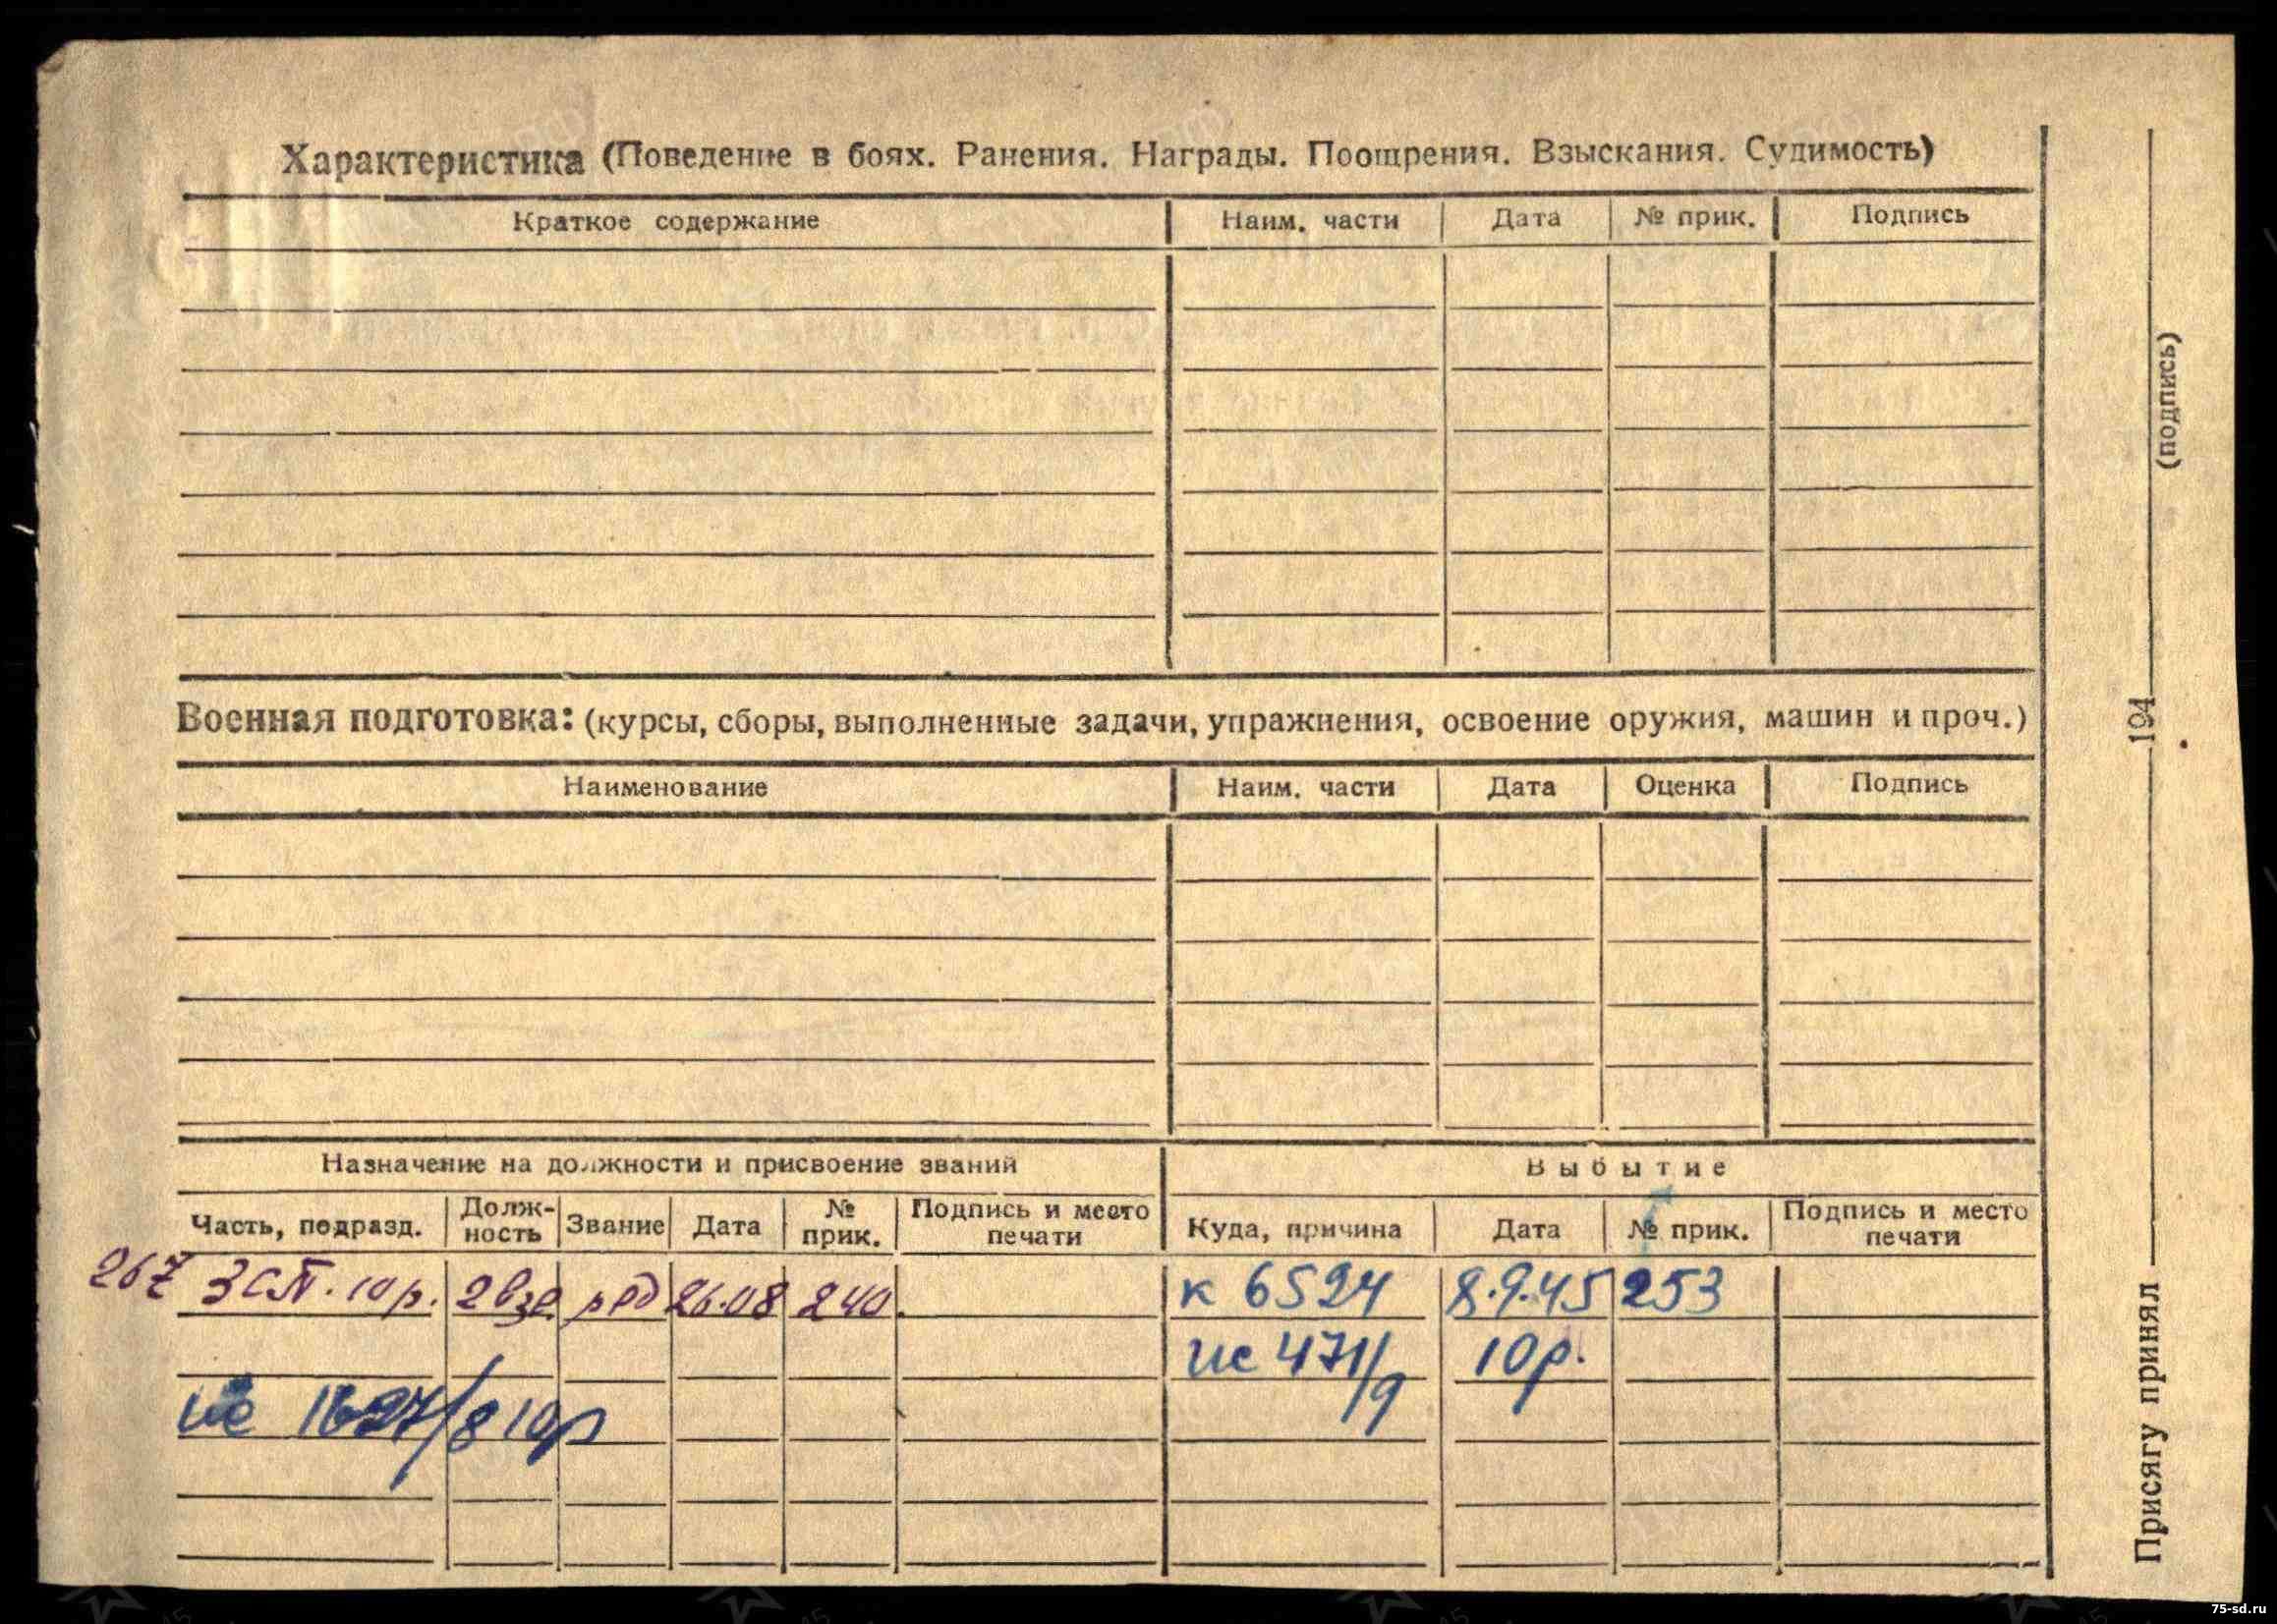 Характеристика (Поведение в боях. Ранения. Награды. Поощрения. Взыскания. Судимость)
Краткое содержание Наим. части Дата № прик. Подпись
Военная подготовка: (курсы, сборы, выполненные задачи, упражнения, освоение оружия, машин и проч.)
Наименование Наим. части Дата Оценка Подпись
Назначение на должности и присвоение званий Выбытие
Часть, подразд. Должность Звание Дата № прик. Подпись и место печати Куда, причина Дата № прик. Подпись и место печати
267 ЗСП. 10 р. 2 взв ряд 26.08 240 к 6524 8.9.45 253
ис 471/9 10р.
ис 1627/8 10р
(подпись)
194
Присягу принял
75-sd.ru